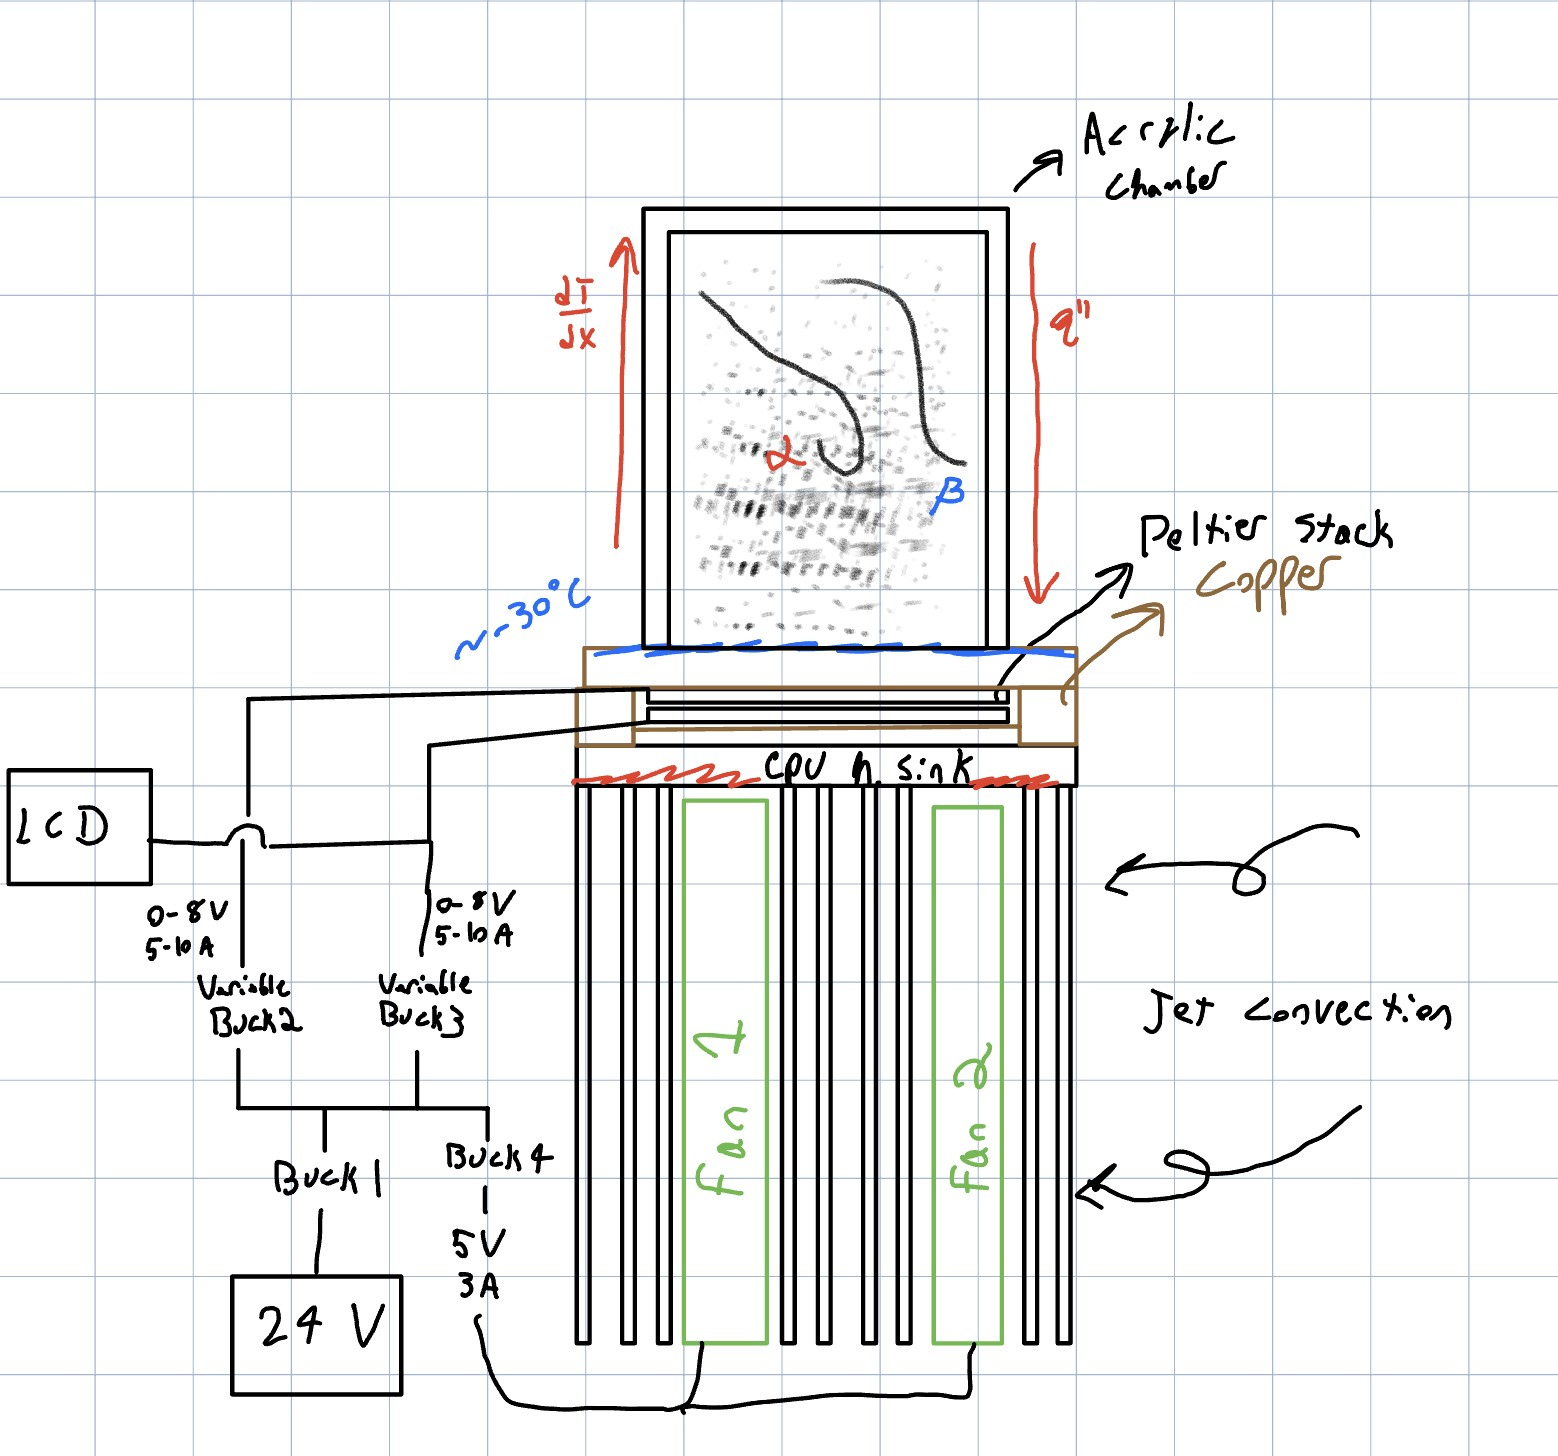 Acrylic
Chamber
dT
dx
q"
α
β
~-30°C
Peltier Stack
Copper
CPU h. sink
LCD
0-8V
5-10A
0-8V
5-10A
Variable
Buck2
Variable
Buck3
Jet Convection
Fan 1
Fan 2
Buck 1
Buck 4
5V
3A
24 V